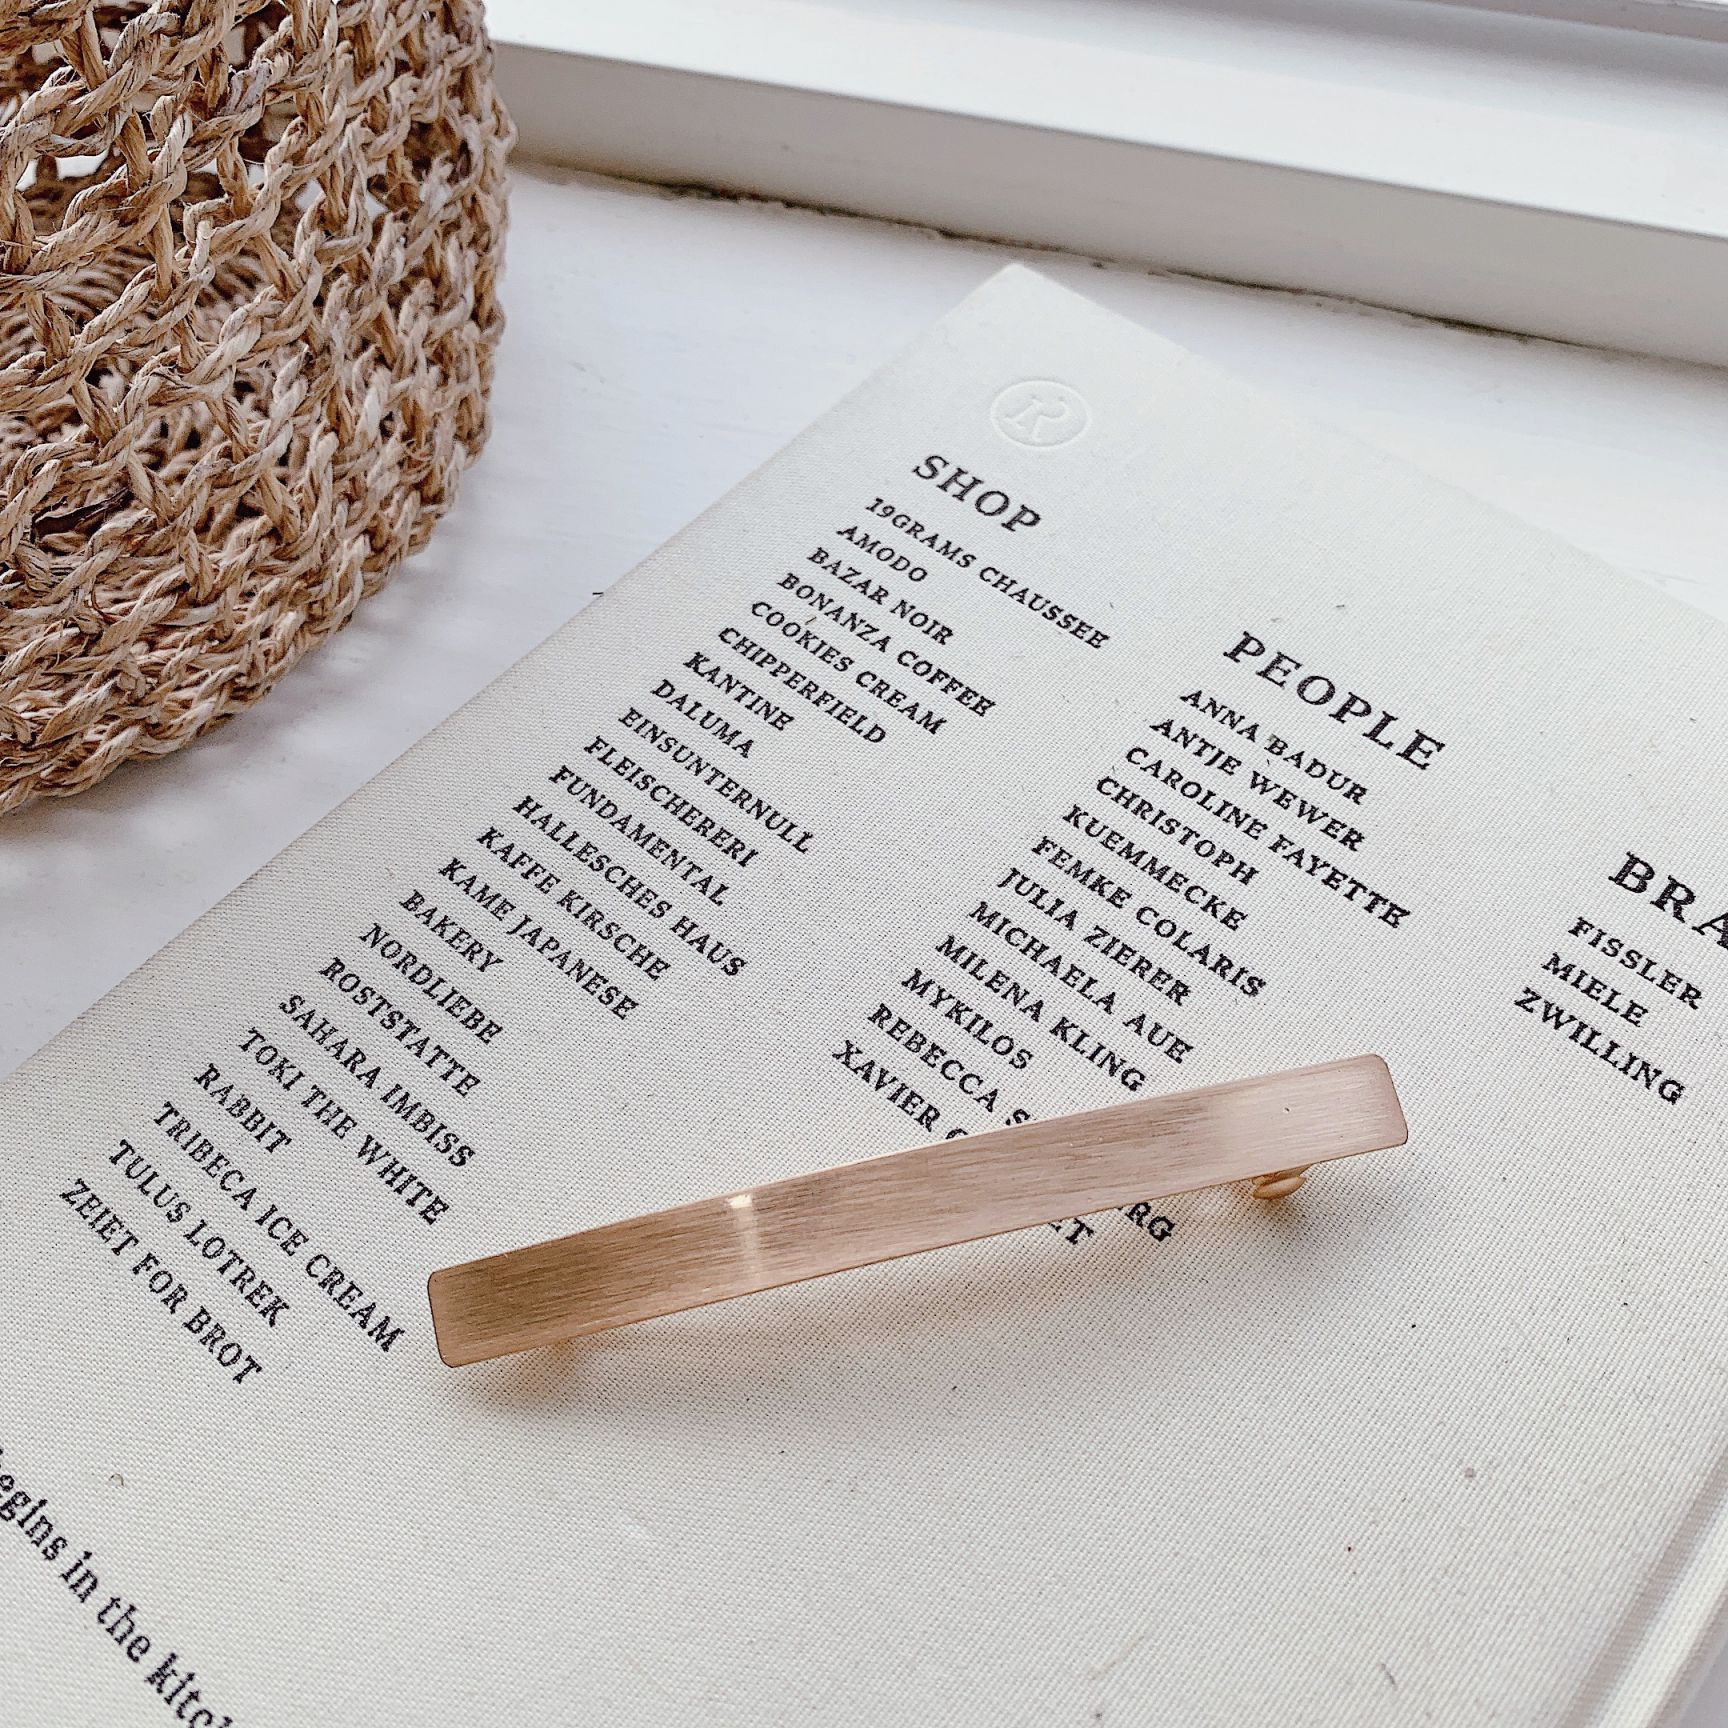 SHOP
19GRAMS CHAUSSEE
AMODO
BAZAR NOIR
BONANZA COFFEE
COOKIES CREAM
CHIPPERFIELD
KANTINE
DALUMA
EINSUNTERNULL
FLEISCHEREREI
FUNDAMENTAL
HALLESCHES HAUS
KAFFE KIRSCHE
KAME JAPANESE
BAKERY
NORDLIEBE
ROSTSTATTE
SAHARA IMBISS
TOKI THE WHITE
RABBIT
TRIBECA ICE CREAM
TULUS LOTREK
ZEIET FOR BROT
PEOPLE
ANNA BADUR
ANTJE WEWER
CAROLINE FAYETTE
CHRISTOPH
KUEMMECKE
FEMKE COLARIS
JULIA ZIERER
MICHAELA AUE
MILENA KLING
MYKILOS
REBECCA
XAVIER
BRA
FISSLER
MIELE
ZWILLING
begins in the kitch